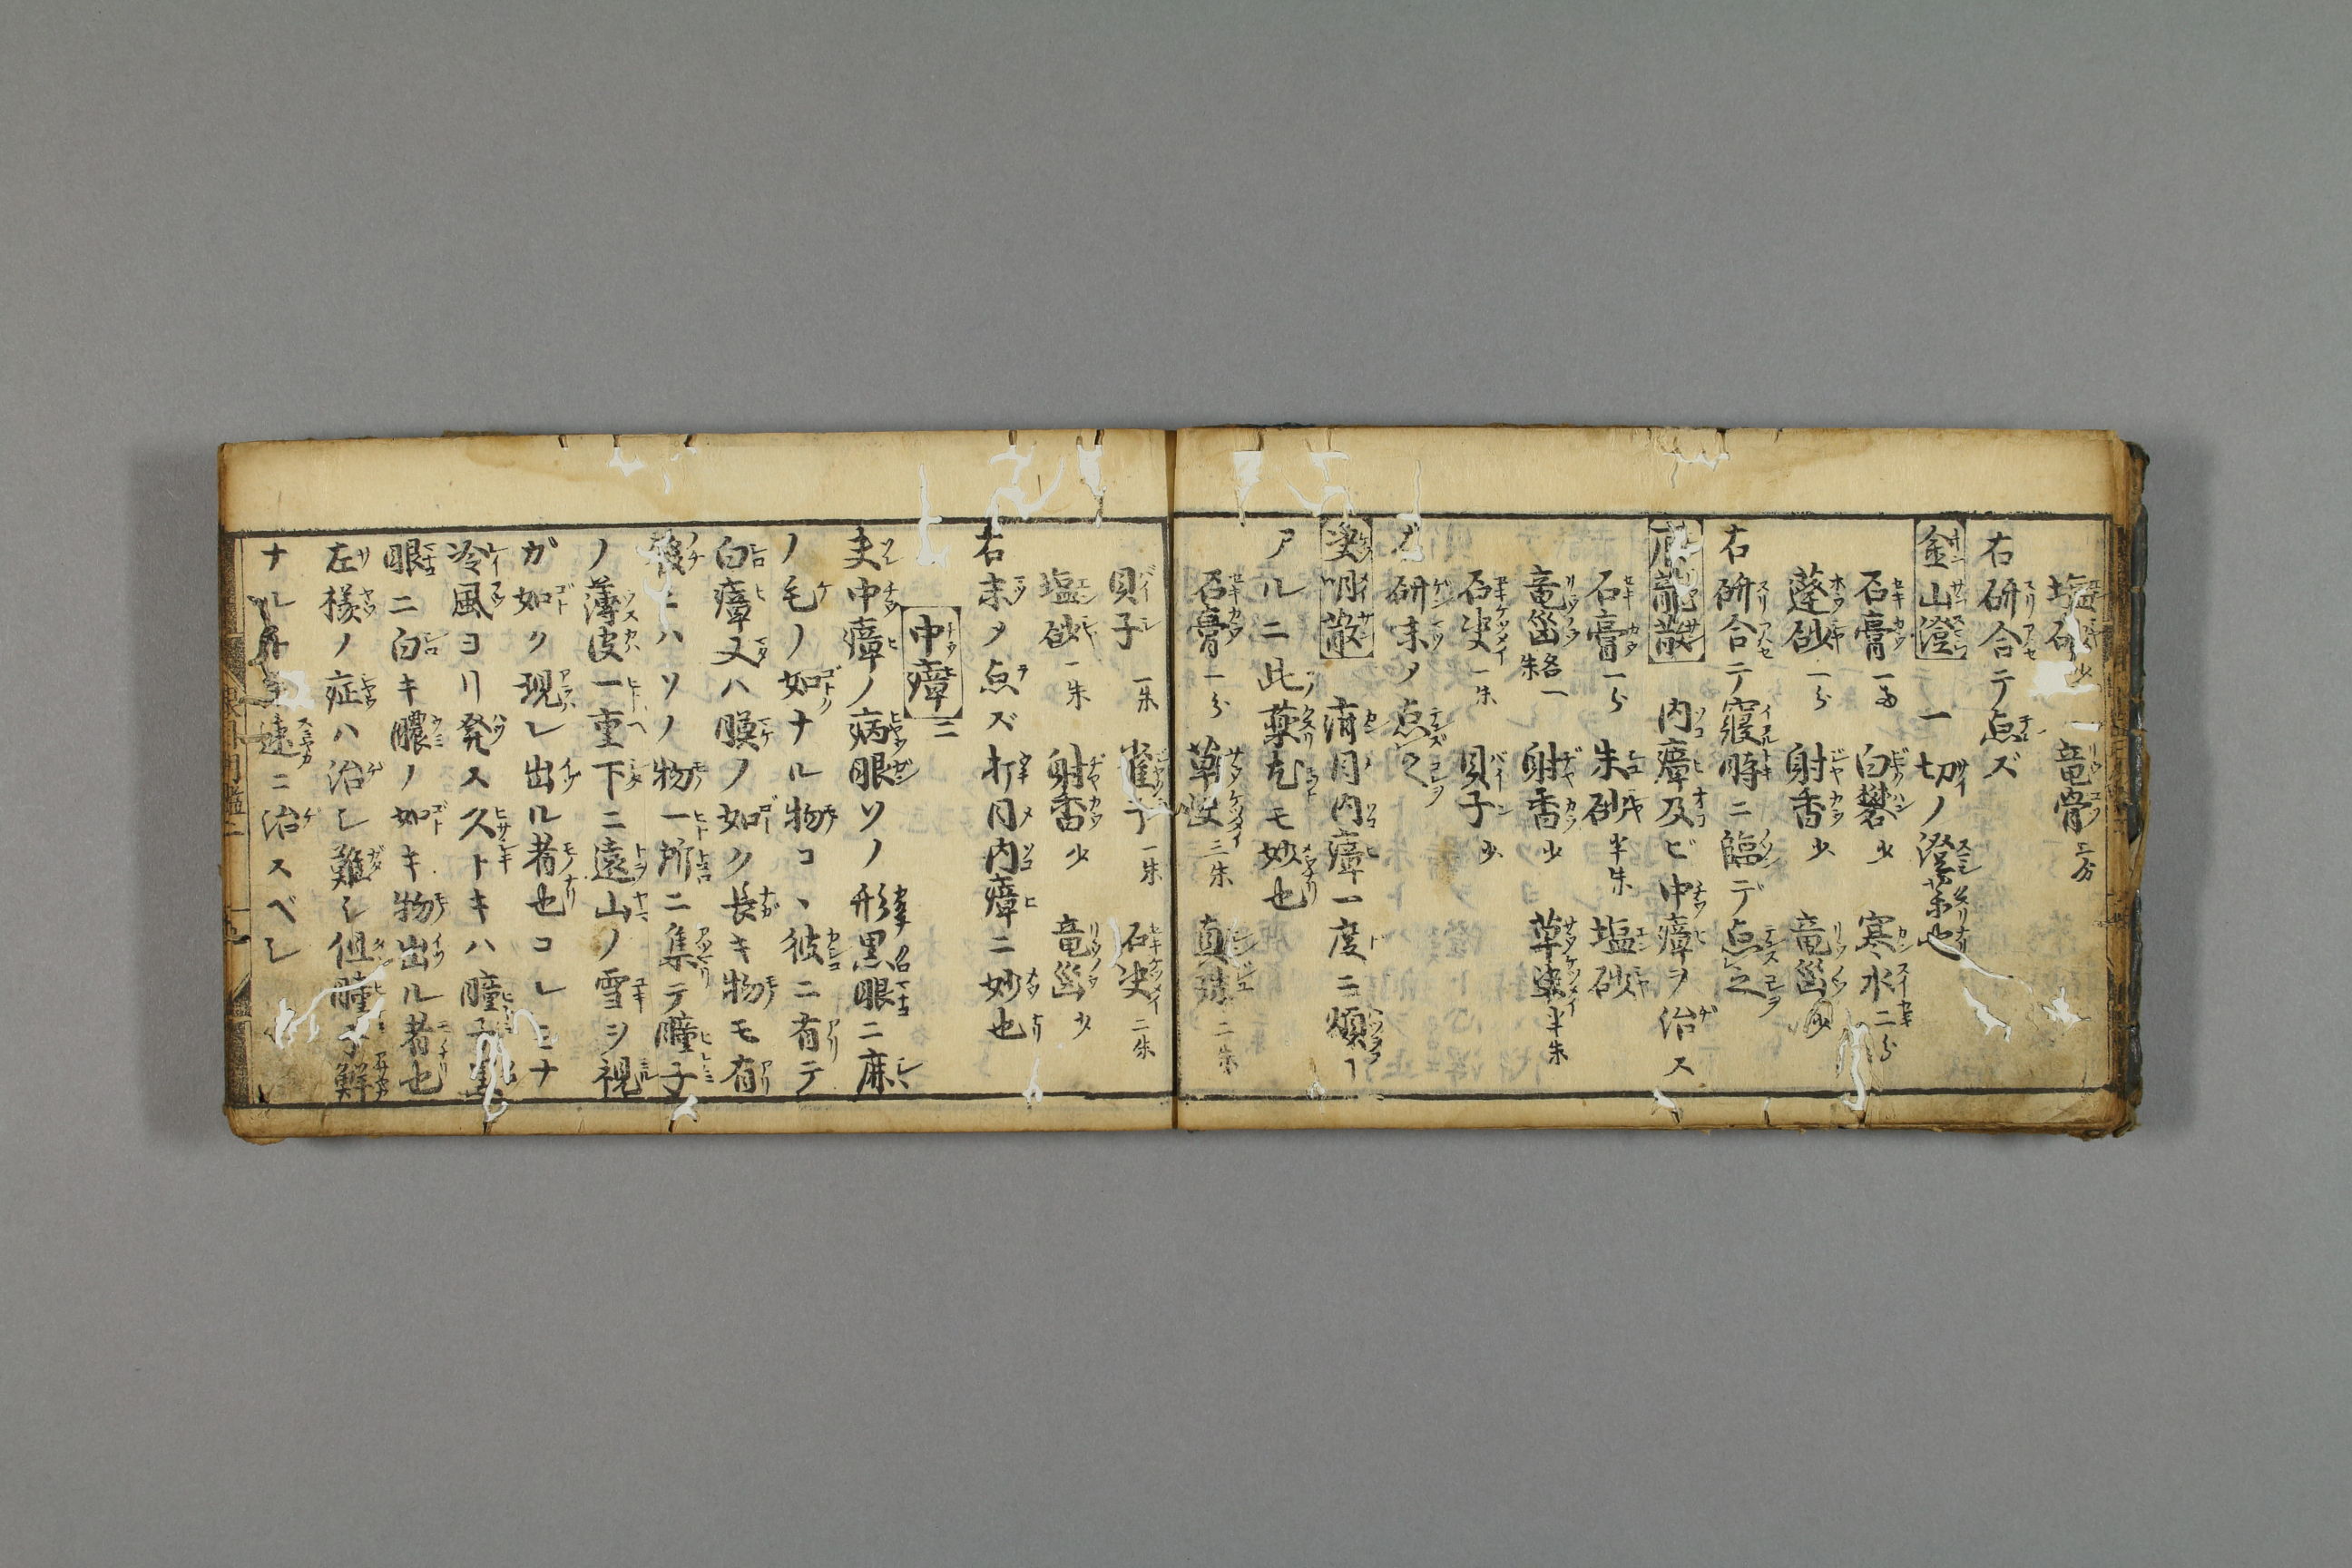 塩砂 少 竜骨 三分
右研合テ点ズ
金山澄 一切ノ澄薬也
石膏 一両 白礬 少 寒水 二分
蓬砂 一分 射香 少 竜𦛁 少
右研合テ寢時ニ臨デ点之
龍散 内瘴及ビ中瘴ヲ治ス
石膏 一分 朱砂 半朱 塩砂
竜𦛁 各一朱 射香 少 草決 半朱
石决 一朱 貝子 少
右研末メ点之
决明散 内瘴一度ニ煩フ
アルニ此薬尤モ妙也
石膏 一分 草决 三朱 真珠 二朱
貝子 一朱 雀 一朱 石决 二朱
塩砂 一朱 射香 少 竜𦛁 少
右末メ点ズ 打目内瘴ニ妙也
中瘴 三
夫中瘴ノ病眼ソノ形黒眼ニ麻
ノ毛ノ如ナル物コヽ彼ニ有テ
白瘴又ハ膜ノ如ク長キ物モ有
後ニハソノ物一所ニ集テ瞳子
ノ薄皮一重下ニ遠山ノ雪ヲ視
ガ如ク現レ出ル者也コレミナ
冷風ヨリ発ス久トキハ瞳子
眼ニ白キ膿ノ如キ物出ル者也
左様ノ症ハ治シ難シ但瞳子鮮
ナル 速ニ治スベシ